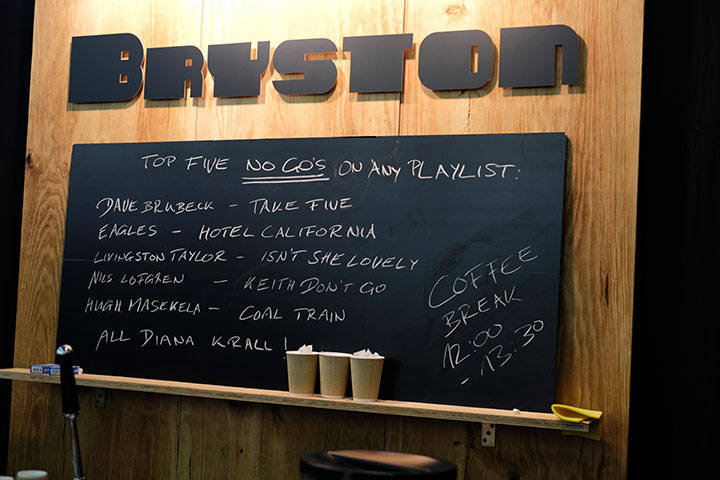 BRYSTON
TOP FIVE NO GO'S ON ANY PLAYLIST:
DAVE BRUBECK – TAKE FIVE
EAGLES – HOTEL CALIFORNIA
LIVINGSTON TAYLOR – ISN'T SHE LOVELY
NILS LOFGREN – KEITH DON'T GO
HUGH MASEKELA – COAL TRAIN
ALL DIANA KRALL!
COFFEE
BREAK
12:00
- 13:30